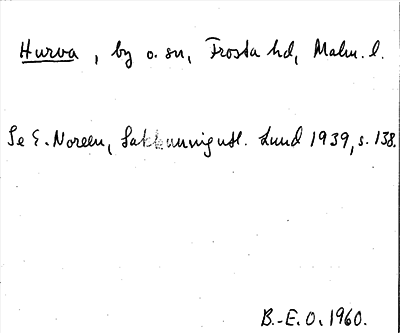 Hurva, by o. sn, Frosta hd, Malm. l.
Se E. Noreen, Sakkunnigutl. Lund 1939, s. 138.
B.-E. O. 1960.